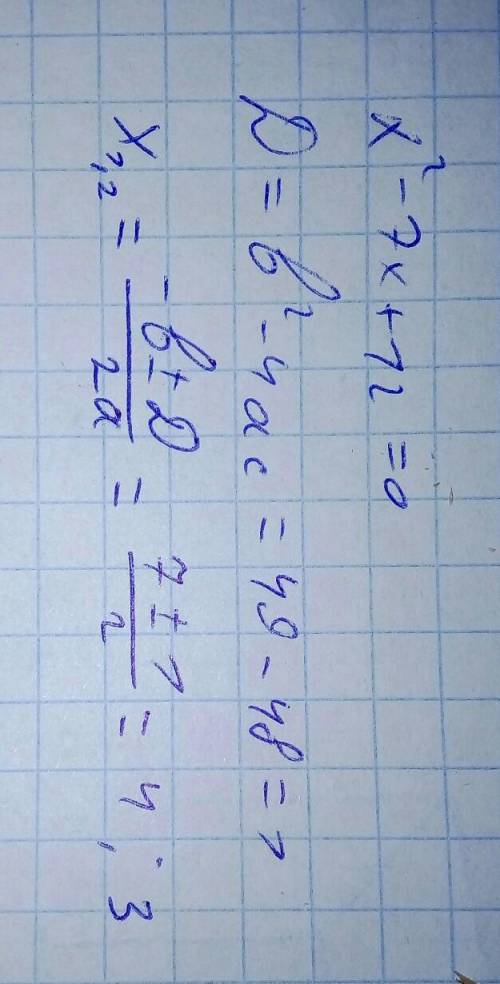 x² - 7x + 12 = 0
D = b² - 4ac = 49 - 48 = 1
x₁,₂ = (-b ± D) / 2a = (7 ± 1) / 2 = 4; 3